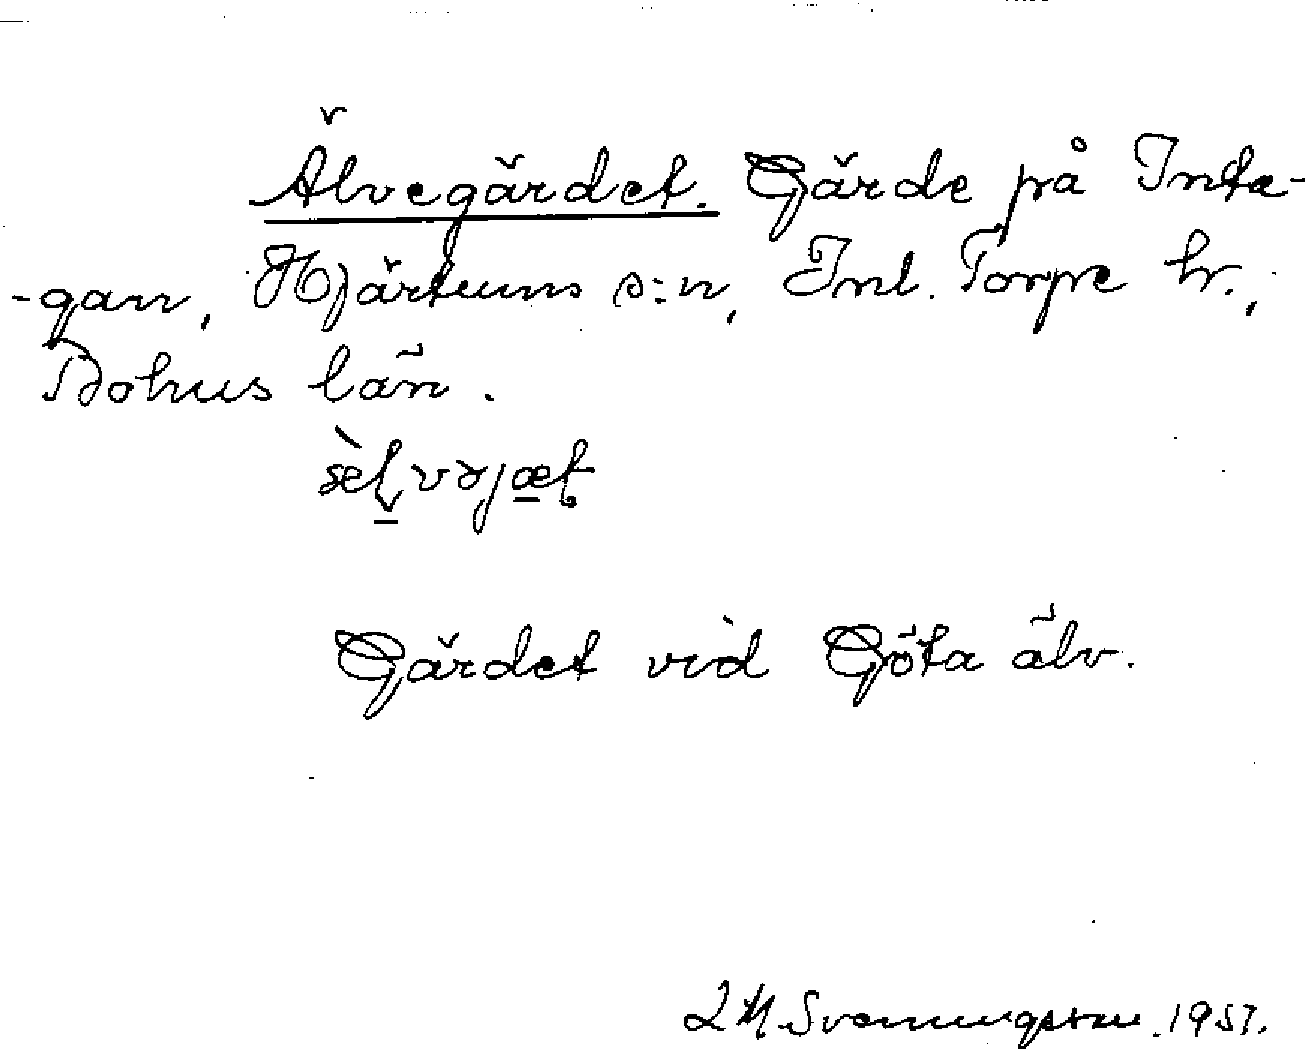 Älvegärdet. Gärde på Inta-
-gan, Hjärtums s:n, Inl. Torpe hr.,
Bohus län.
Gärdet vid Göta älv.
Svenungsson. 1957.